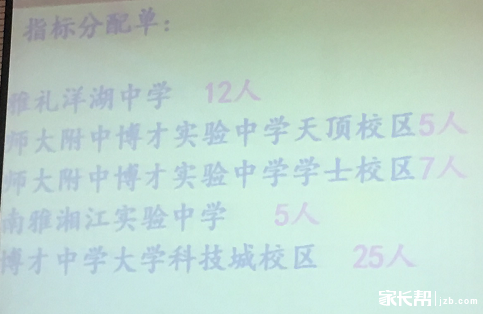 指标分配单：
雅礼洋湖中学 12人
师大附中博才实验中学天顶校区5人
师大附中博才实验中学学士校区7人
南雅湘江实验中学 5人
博才中学大学科技城校区 25人
家长帮 jzb.com